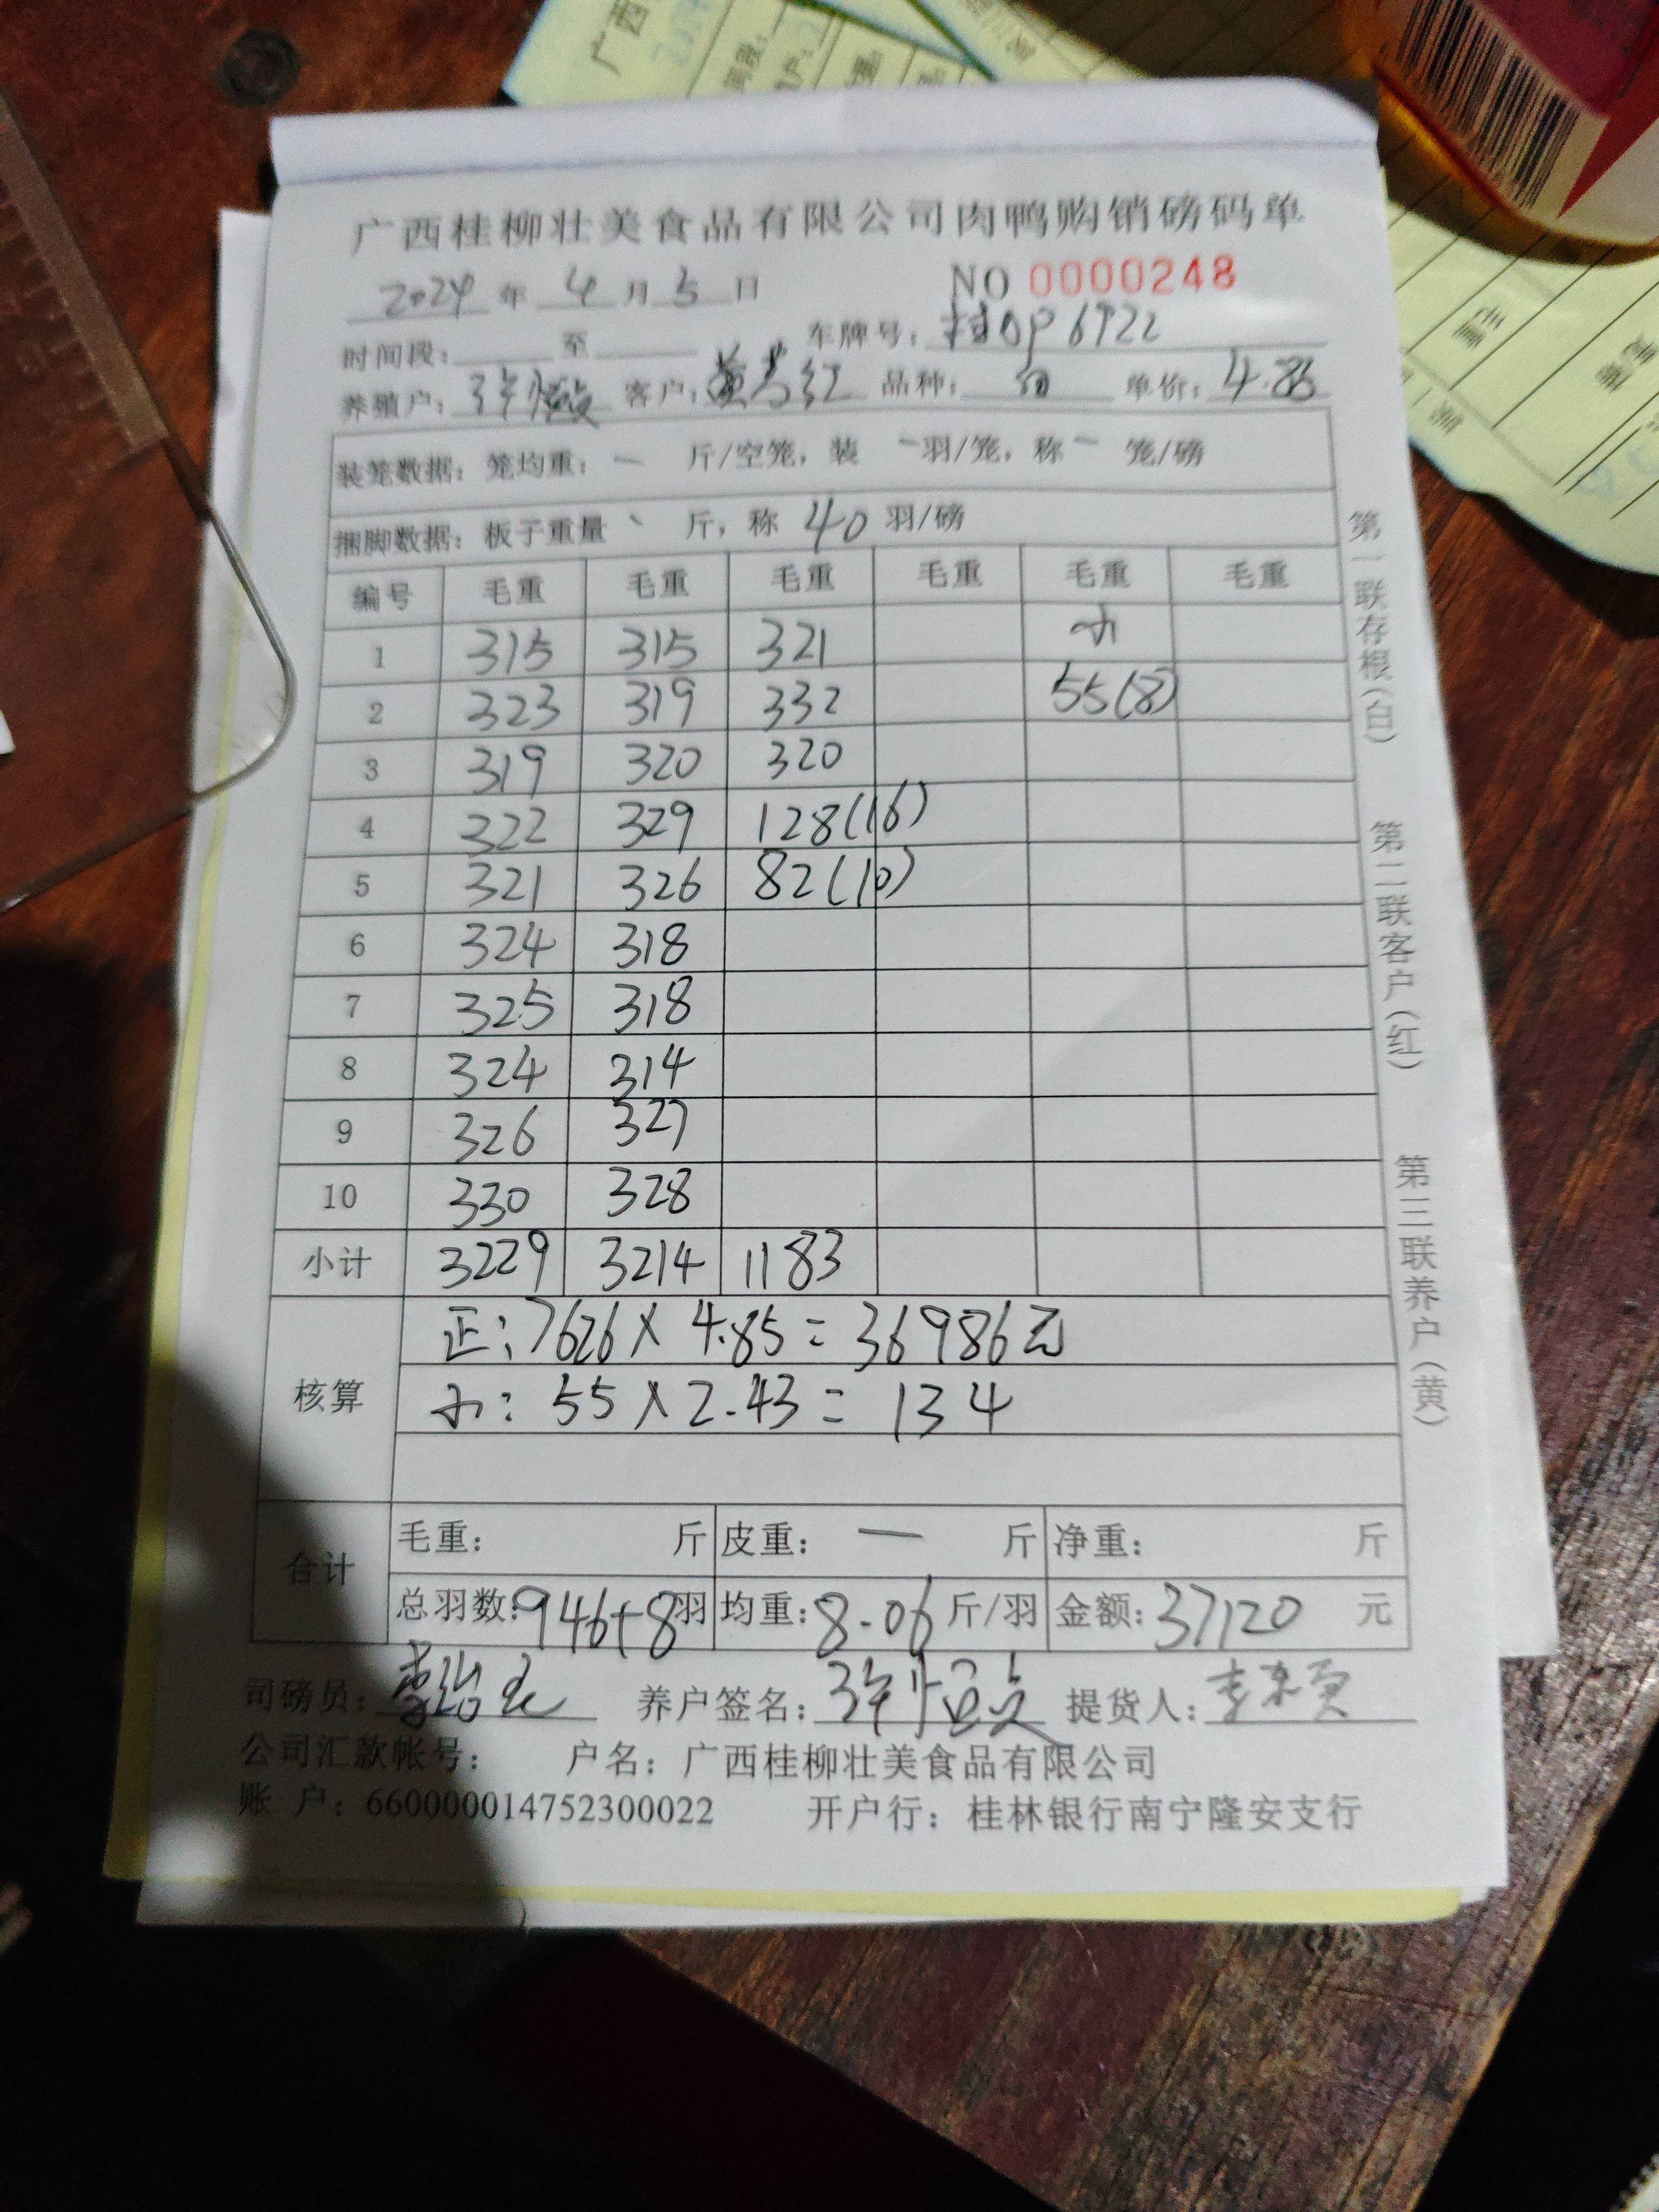 广西桂柳壮美食品有限公司肉鸭购销磅码单
2024年 4月 5日 NO 0000248
时间段: 至 车牌号:
养殖户: 客户: 品种: 单价: 4.85
装笼数据: 笼均重: 一 斤/空笼, 装 一羽/笼, 称 一 笼/磅
捆脚数据: 板子重量 斤, 称 40 羽/磅
编号 毛重 毛重 毛重 毛重 毛重 毛重
1 315 315 321 小
2 323 319 332 55(8)
3 319 320 320
4 322 329 128(16)
5 321 326 82(10)
6 324 318
7 325 318
8 324 314
9 326 327
10 330 328
小计 3229 3214 1183
核算 正: 7626×4.85=36986元
小: 55×2.43=134
合计 毛重: 斤 皮重: 一 斤 净重: 斤
总羽数: 946+8羽 均重: 8.06 斤/羽 金额: 37120 元
司磅员: 养户签名: 提货人:
公司汇款帐号: 户名: 广西桂柳壮美食品有限公司
账 户: 660000014752300022 开户行: 桂林银行南宁隆安支行
第一联存根(白)
第二联客户(红)
第三联养户(黄)
广西